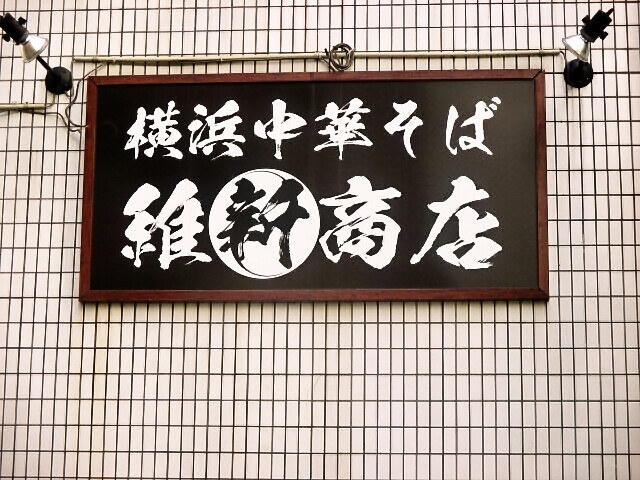 横浜中華そば
維新商店